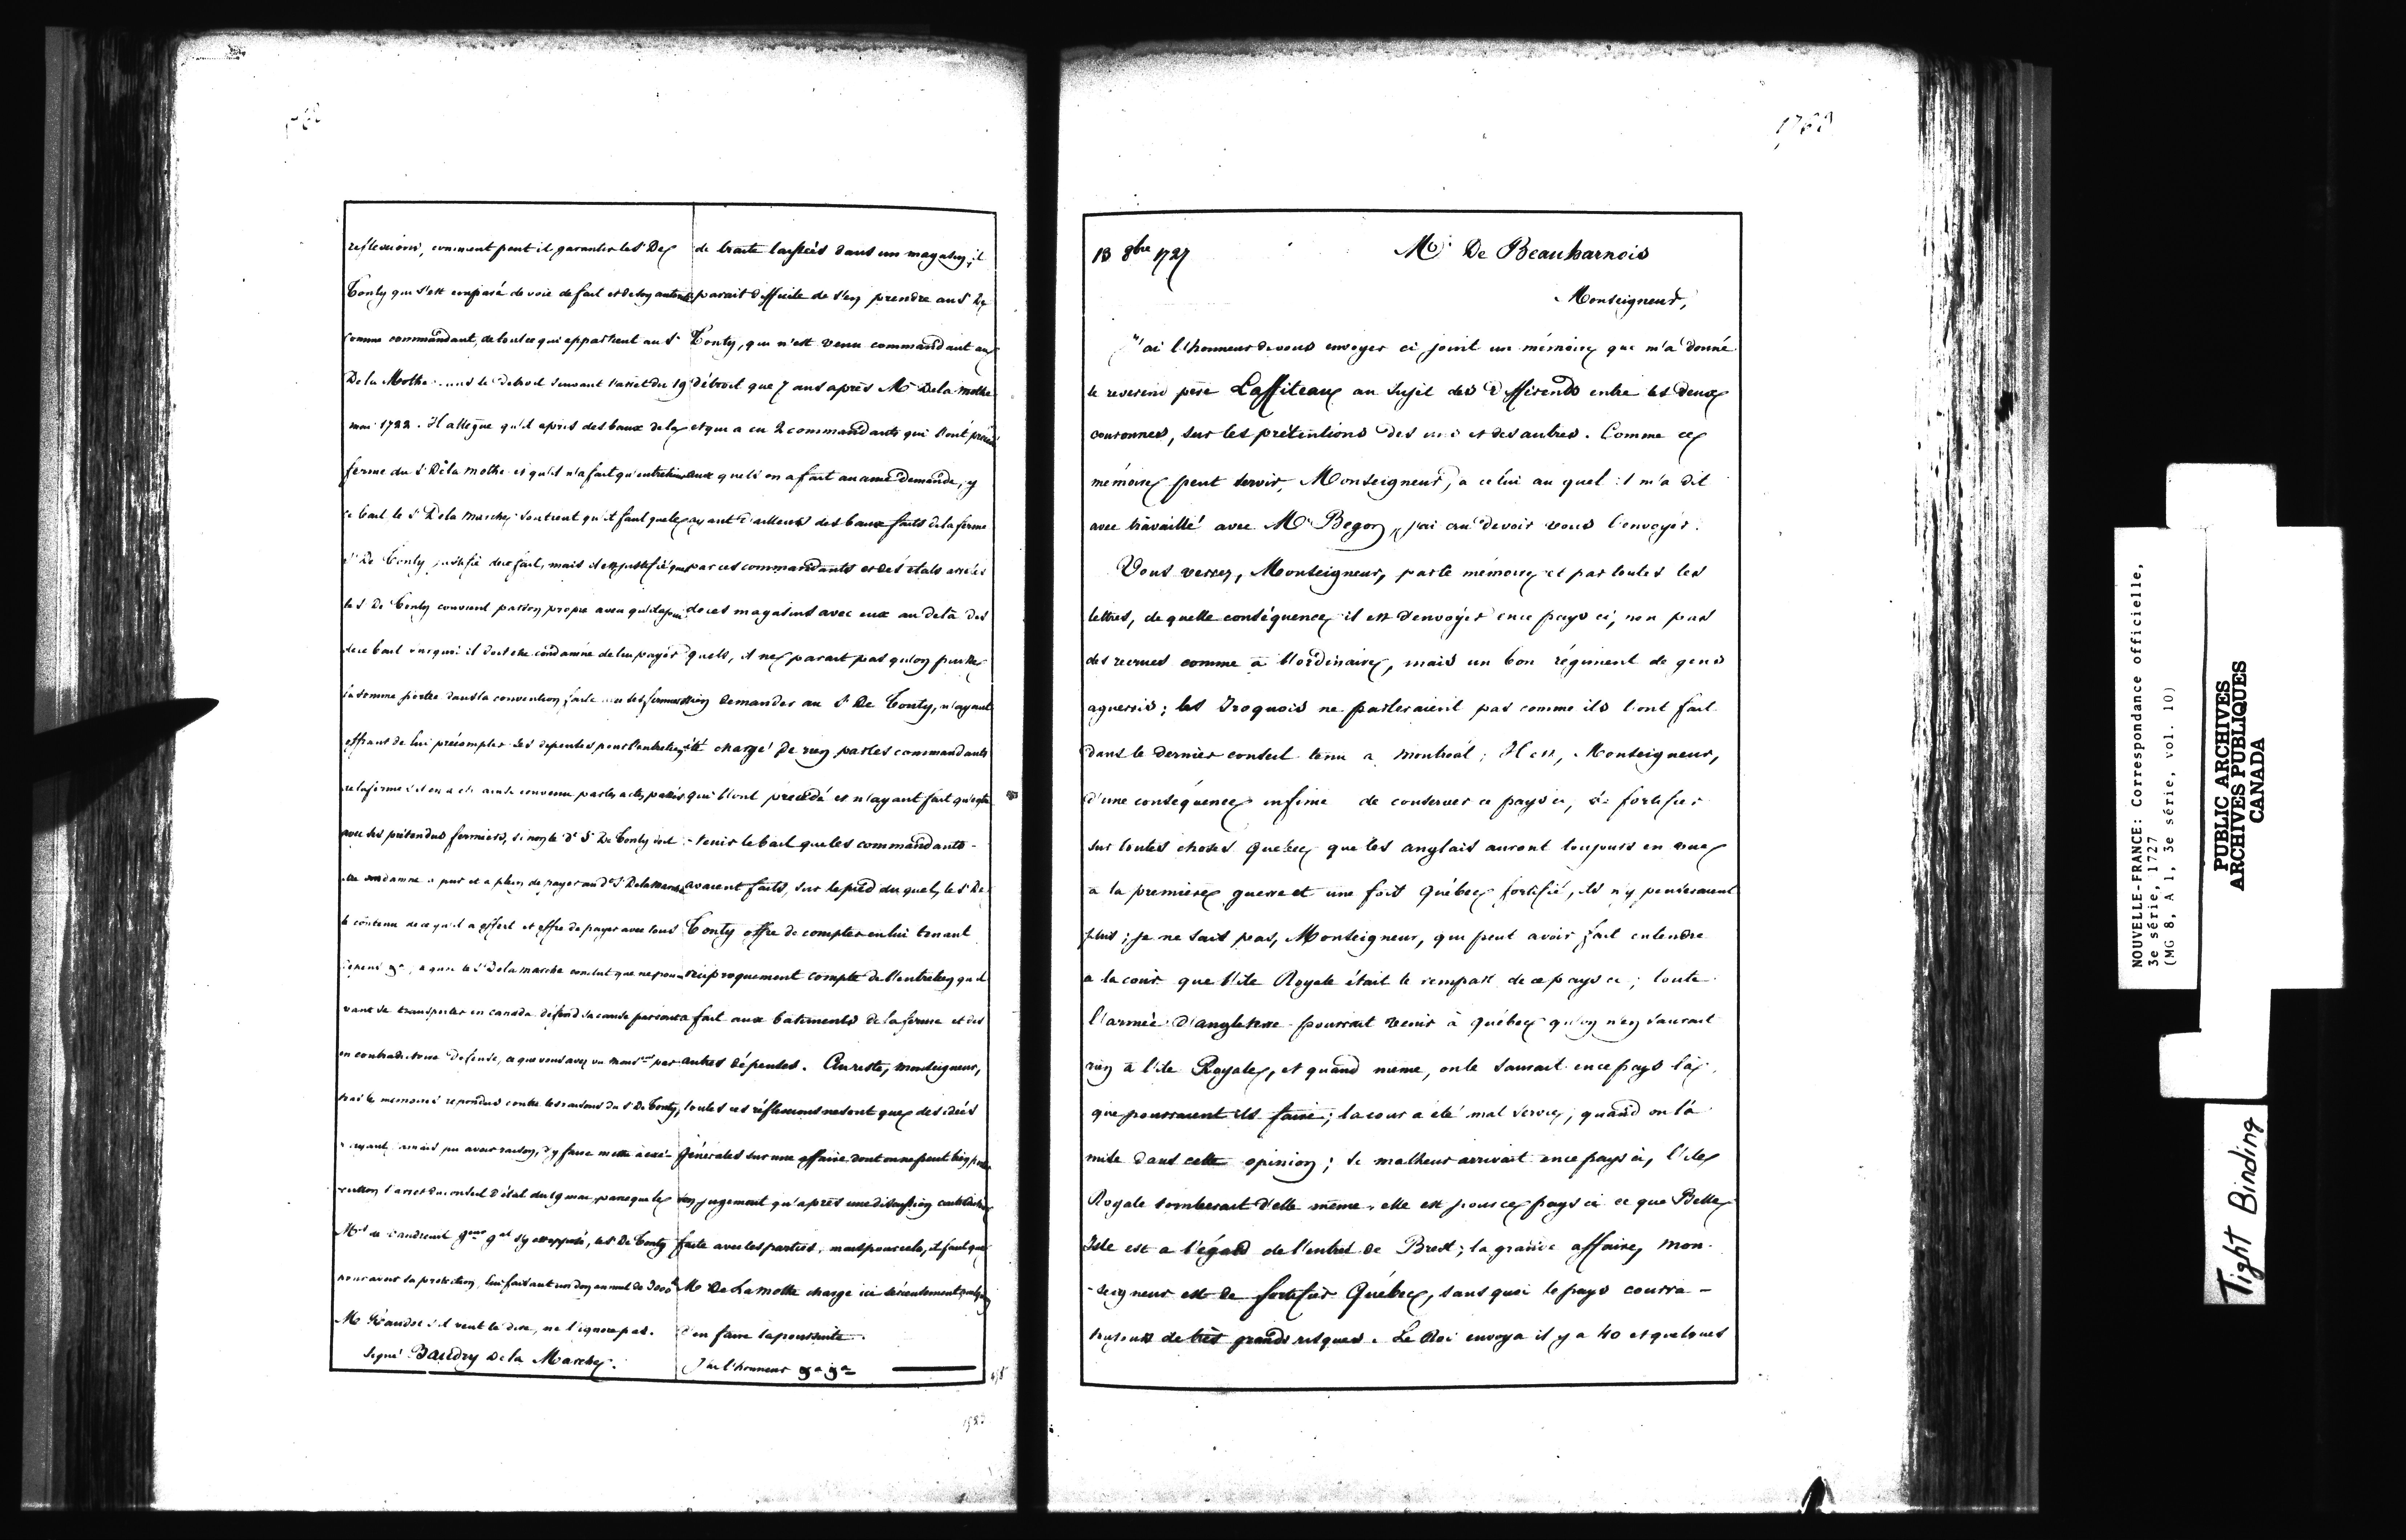 réflexions, comment peut il garantir le Sr De
Tonty qui s'est emparé de voie de fait et de son autorité
comme commandant, de tout ce qui appartient au Sr
De la Mothe le detroit suivant l'arrêt du 19
mai 1722. Il allègue qu'il a pris des baux de la
ferme du Sr De la Mothe et qu'il n'a fait qu'entretenir
ce bail le Sr De la Marche soutient qu'il faut que le
Sr De Tonty justifie de ce fait, mais
le Sr De Tonty convient par son propre aveu
de ce bail il doit être condamné de lui payer
la somme portée dans la convention faite
offrant de lui précompter ses dépenses pour l'entretien
convenu par les actes passés
avec ses prétendus fermiers, sinon le dt Sr De Tonty doit
condamné a pur et a plein de payer au dt Sr Delamarche
le contenu de ce qu'il a offert et offre de payer avec tous
a quoi le Sr Delamarche conclut que ne pou-
vant se transporter en canada défend sa cause
en contradictoire défense, ce que vous avez vu par
le mémoire répondu contre les raisons du Sr De Tonty,
ayant jamais pu avoir raison, d'y faire mettre à exé-
cution l'arrêt du conseil d'état du 19 mai parce que le
Mis de Vaudreuil gouvr gal s'y est opposé, le Sr De Tonty
pour avoir sa protection, lui faisant un don annuel de
Mr s'il veut le dire, ne l'ignore pas.
Signé Baudry De la Marche.
de traite laissées dans un magasin; il
parait difficile de s'en prendre au Sr De
Tonty, qui n'est venu commandant au
détroit que 7 ans après Mr De la Mothe
et qui a eu 2 commandants qui l'ont précédé
aux quels on a fait aucune demande, y
ayant d'ailleurs des baux faits de la ferme
par ces commandants et des états arrêtés
de ces magasins avec eux au delà des
quels, il ne parait pas qu'on puisse
rien demander au Sr De Tonty, n'ayant
été chargé de rien par les commandants
qui l'ont précédé et n'ayant fait qu'entre
-tenir le bail que les commandants-
avaient faits, sur le pied du quel, le Sr De
Tonty offre de compter en lui tenant
réciproquement compte de l'entretien qu'il
a fait aux batiments de la ferme et des
autres dépenses. Au reste, Monseigneur,
toutes ces réflexions ne sont que des idées
générales sur une affaire dont on ne peut bien
jugement qu'après une discussion contradictoire
faite avec les parties, mais pour cela, il faut que
Mr De Lamothe charge ici
d'en faire la poursuite.
J'ai l'honneur &a &a
13 8bre 1727
Mr De Beauharnois
Monseigneur,
J'ai l'honneur de vous envoyer ci joint un mémoire que m'a donné
le reverend père Laffiteau au sujet des différends entre les deux
couronnes, sur les prétentions des uns et des autres. Comme ce
mémoire peut servir, Monseigneur, a celui au quel il m'a dit
avoir travaillé avec Mr Begon, j'ai cru devoir vous l'envoyer.
Vous verrez, Monseigneur, par le mémoire et par toutes les
lettres, de quelle conséquence il est d'envoyer en ce pays ci, non pas
des recrues comme à l'ordinaire, mais un bon régiment de gens
aguerris; les Iroquois ne parleraient pas comme ils l'ont fait
dans le dernier conseil tenu a Montréal; Il est, Monseigneur,
d'une conséquence infinie de conserver ce pays ci, de fortifier
sur toutes choses Québec que les anglais auront toujours en vue
a la première guerre et une fois Québec fortifié, ils n'y penseraient
plus; je ne sais pas, Monseigneur, qui peut avoir fait entendre
a la cour que l'ile Royale était le rempart de ce pays ci; toute
l'armée d'angleterre pourrait venir à Québec qu'on n'en saurait
rien à l'ile Royale, et quand même, on le saurait en ce pays là,
que pourraient ils faire; la cour a été mal servie, quand on l'a
mise dans cette opinion; si malheur arrivait en ce pays ci, l'ile
Royale tomberait d'elle même. elle est pour ce pays ci ce que Belle
Isle est a l'égard de l'entrée de Brest; la grande affaire, Mon-
-seigneur est de fortifier Québec, sans quoi le pays courra-
toujours de très grands risques. Le Roi envoya il y a 40 et quelques
NOUVELLE-FRANCE: Correspondance officielle,
3e série, 1727
(MG 8, A 1, 3e série, vol. 10)
PUBLIC ARCHIVES
ARCHIVES PUBLIQUES
CANADA
Tight Binding